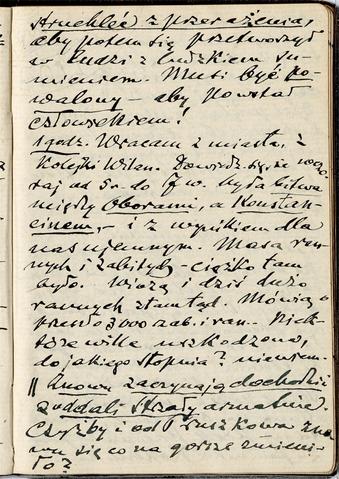 struchleć z przerażenia,
aby potem się przetworzyć
w ludzi z ludzkiem su-
mieniem. Musi być po-
walony – aby powstał
człowiekiem!
1 godz. Wracam z miasta, z
Kolejki Wilan. Dowiedz. się że wczo-
raj od 5 r. do 7 w. była bitwa
między Oborami, a Konstan-
cinem, – i z wynikiem dla
nas ujemnym. Masa ran-
nych i zabitych – ciężko tam
było. Wiozą i dziś dużo
rannych stamtąd. Mówią o
przeszło 3000 zab. i ran. Niek-
tóre wille uszkodzone,
do jakiego stopnia? niewiem.
|| Znowu zaczynają dochodzić
z oddali strzały armatnie.
Czyżby i od Pruszkowa zno-
wu się co na gorsze zmieni-
ło?